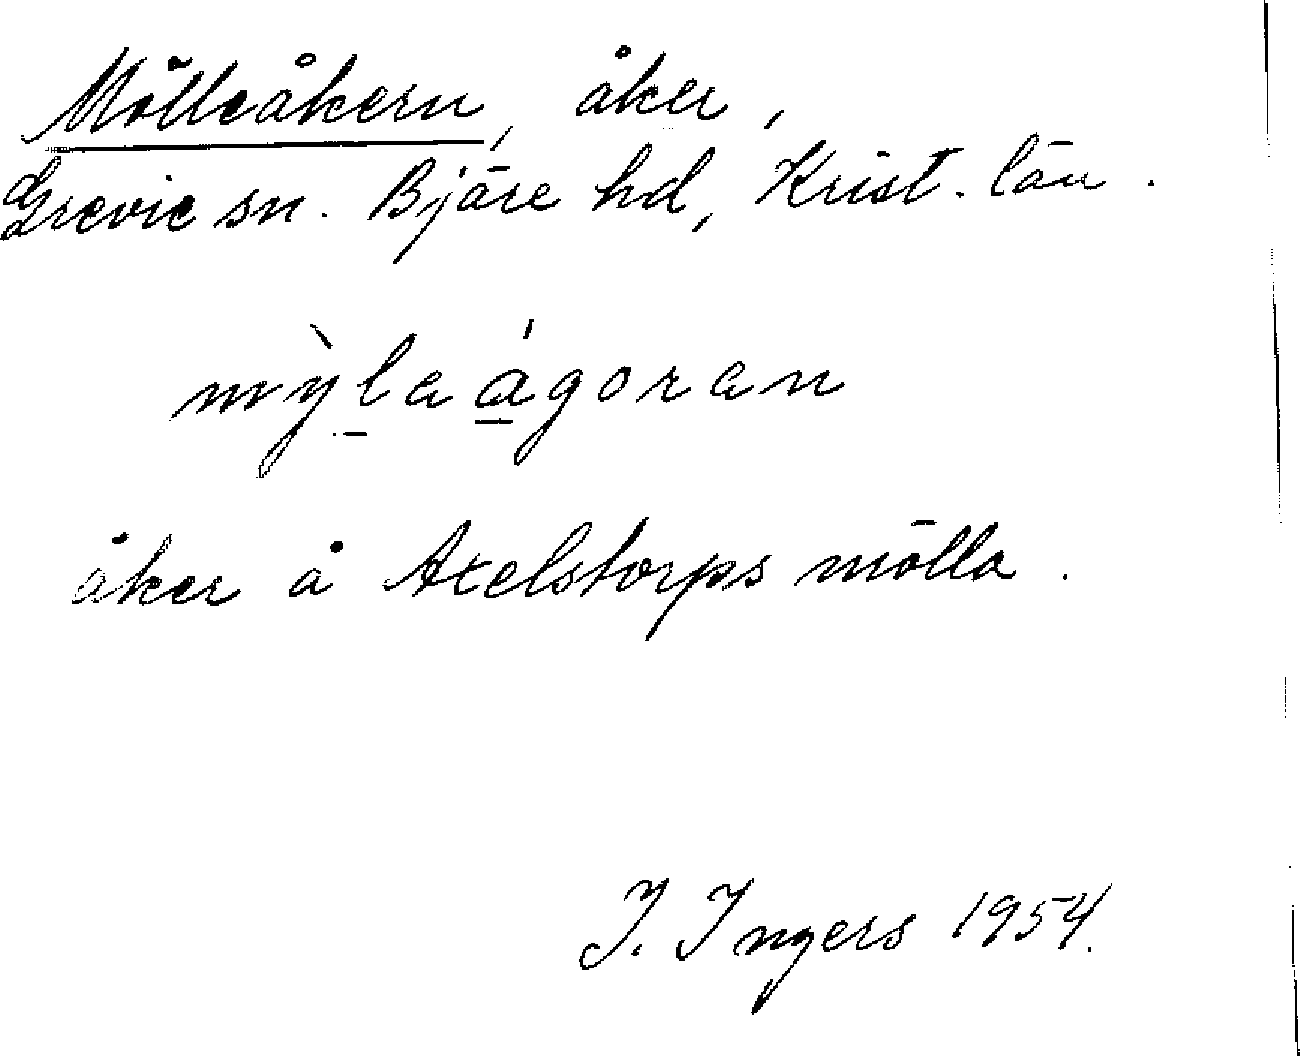 Mölleåkern, åker,
Grevie sn. Bjäre hd, Krist. län.
mỳla ágoran
åker å Axelstorps mölla.
I. Ingers 1954.